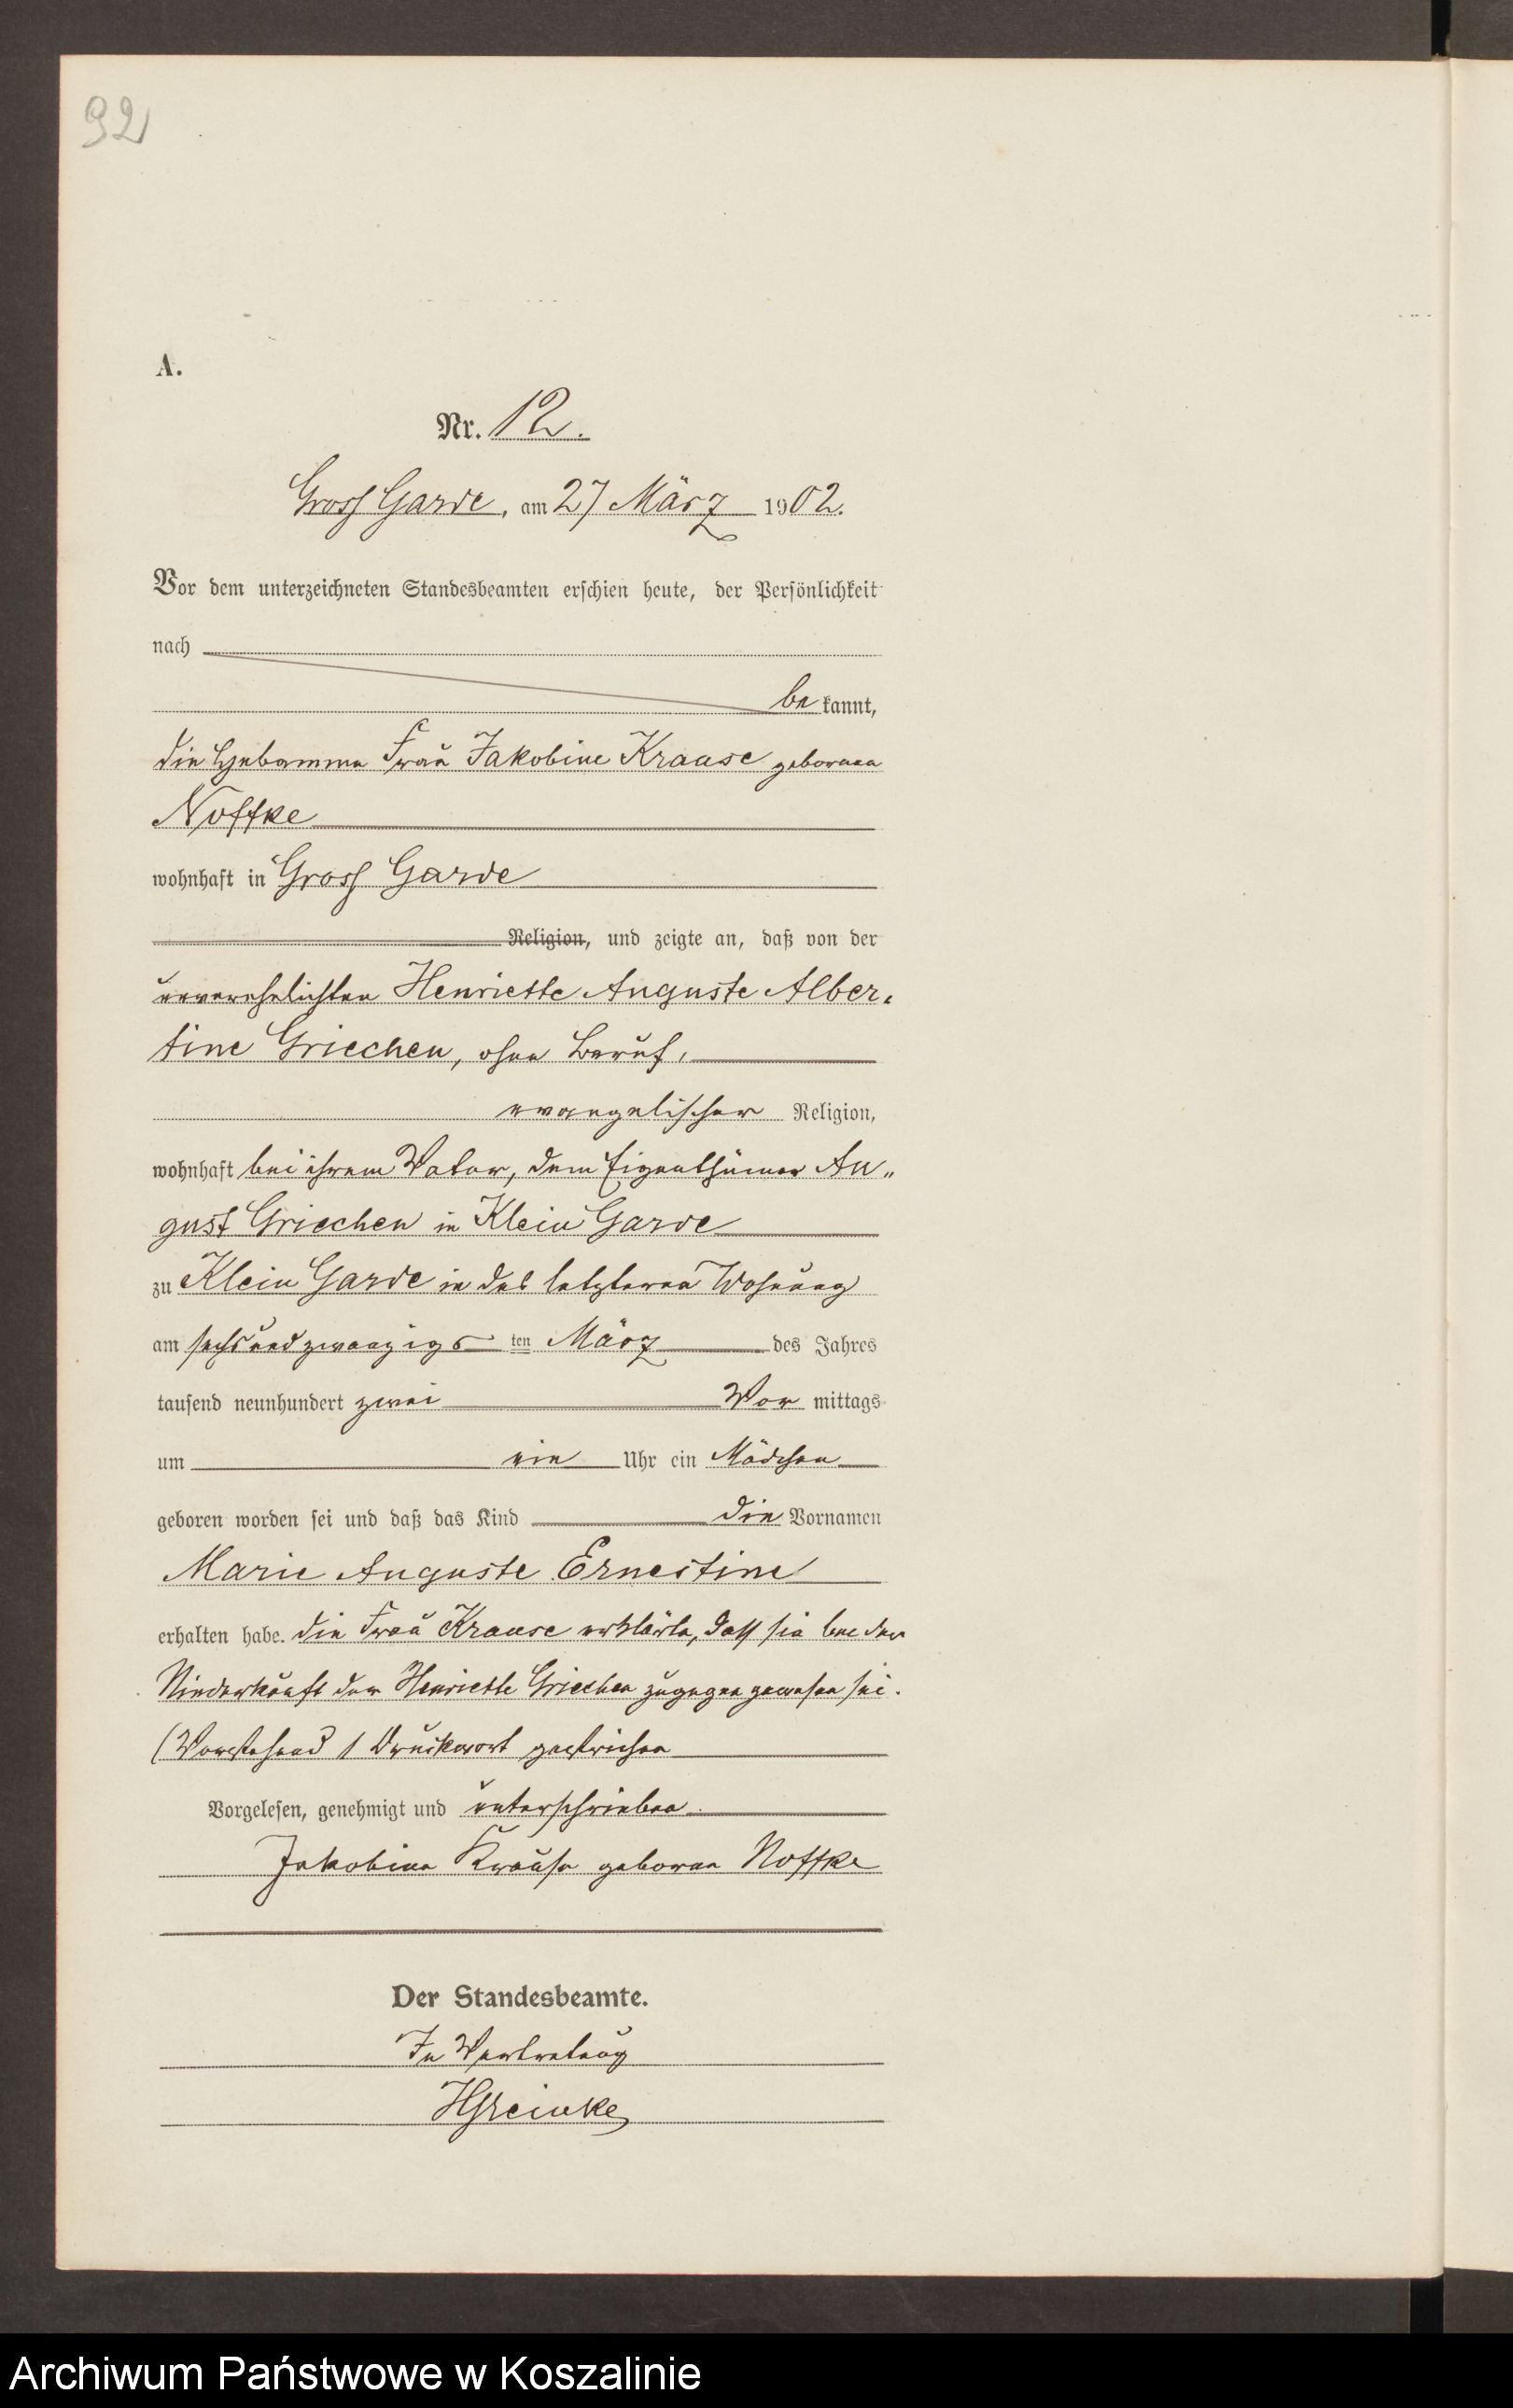 92
A.
Nr. 12.
Gross Garde, am 27 März 1902.
Vor dem unterzeichneten Standesbeamten erschien heute, der Persönlichkeit
nach
be kannt,
die Hebamme Frau Jakobine Krause geborene
Noffke
wohnhaft in Gross Garde
Religion, und zeigte an, daß von der
unverehelichten Henriette Auguste Alber-
tine Griechen, ohne Beruf,
evangelischer Religion,
wohnhaft bei ihrem Vater, dem Eigenthümer Au„
gust Griechen in Klein Garde
zu Klein Garde in des letzteren Wohnung
am sechsundzwanzigs ten März des Jahres
tausend neunhundert zwei Vor mittags
um ein Uhr ein Mädchen
geboren worden sei und daß das Kind die Vornamen
Marie Auguste Ernestine
erhalten habe. Die Frau Krause erklärte, dass sie bei der
Niederkunft der Henriette Griechen zugegen gewesen sei.
(Vorstehend 1 Druckwort gestrichen
Vorgelesen, genehmigt und unterschrieben.
Jakobine Krause geborene Noffke
Der Standesbeamte.
In Vertretung
Archiwum Państwowe w Koszalinie